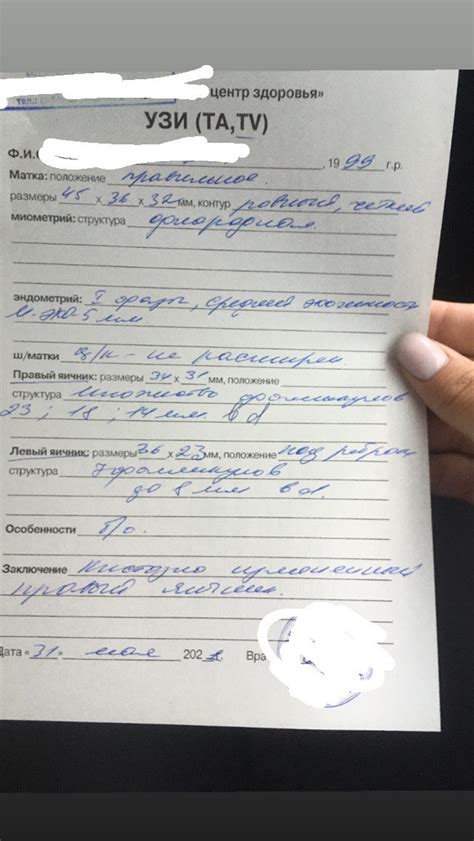 центр здоровья»
УЗИ (TA,TV)
Ф.И.О. , 1999 г.р.
Матка: положение правильное.
размеры 45 х 36 х 32 мм, контур ровный, четкий
миометрий: структура однородная.
эндометрий: I фазы, средней эхогенности
М-эхо 5 мм
ш/матки ц/к - не расширен
Правый яичник: размеры 34 х 31 мм, положение
структура множество фолликулов
23; 18; 14 мм. в d
Левый яичник: размеры 36 х 23 мм, положение под ребром
структура 7 фолликулов
до 8 мм в d.
Особенности б/о.
Заключение Кистозно измененный
правый яичник.
Дата «31» мая 202 Вра